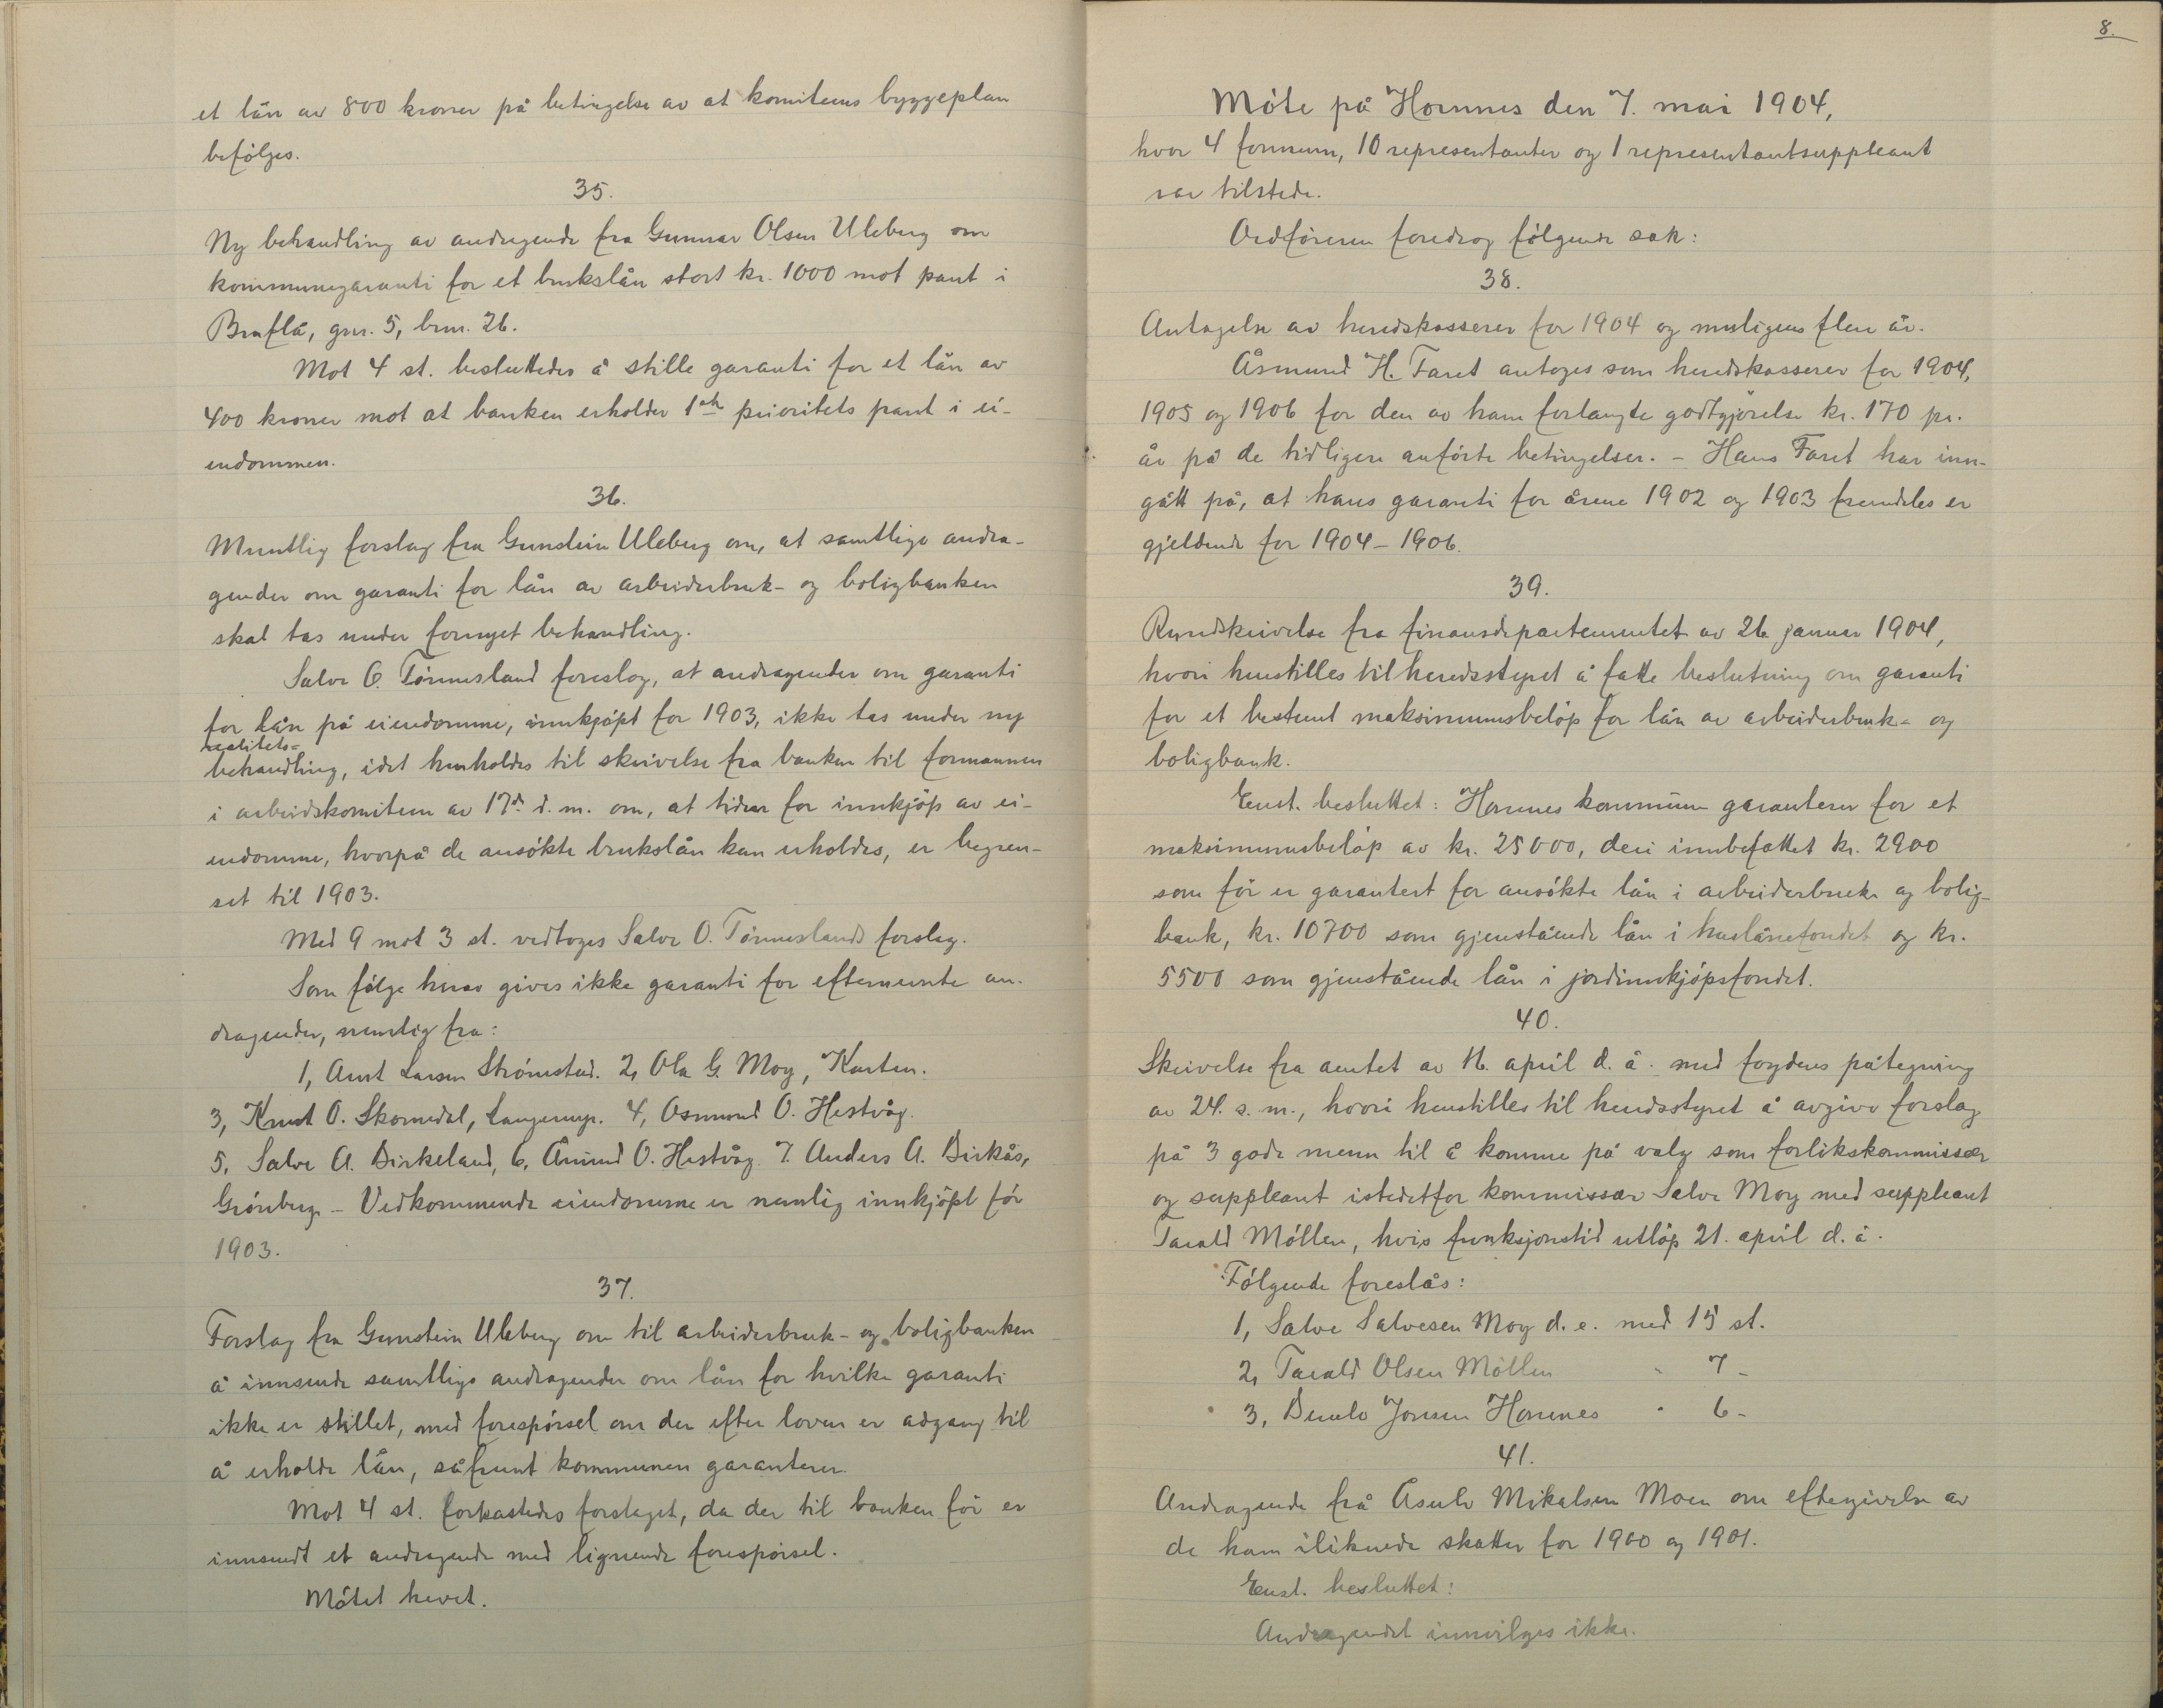 et lån av 800 kroner på betingelse av at komiteens byggeplan
befölges.
35.
Ny behandling av andragende fra Gunnar Olsen Uleberg om
kommunegaranti for et brukslån stort kr. 1000 mot pant i
Bruflå, gnr. 5, brnr. 26.
Mot 4 st. besluttedes å stille garanti for et lån av
400 kroner mot at banken erholder 1ste prioritets pant i ei-
endommen.
36.
Muntlig forslag fra Gunstein Uleberg om, at samtlige andra-
gender om garanti for lån av arbeiderbruk- og boligbanken
skal tas under fornyet behandling.
Salve O. Tönnesland foreslog, at andragender om garanti
for lån på eiendomme, innkjöpt for 1903, ikke tas under ny
realitets-
behandling, idet henholdes til skrivelse fra banken til formannen
i arbeidskomiteen av 17de d. m. om, at tiden for innkjöp av ei-
endomme, hvorpå de ansökte brukslån kan erholdes, er begren-
set til 1903.
Med 9 mot 3 st. vedtoges Salve O. Tönneslands forslag.
Som fölge herav gives ikke garanti for efternevnte an-
dragender, nemlig fra:
1, Anst Larsen Strömstad. 2, Ola G. Moy, Kasten.
3, Knut O. Skomedal, Langemyr. 4, Osmund O. Hestvåg.
5, Salve A. Birkeland, 6, Ånund O. Hestvåg. 7. Anders A. Birkås,
Grönberg. - Vedkommende eiendomme er nemlig innkjöpt för
1903.
37.
Forslag fra Gunstein Uleberg om til arbeiderbruk- og boligbanken
å innsende samtlige andragender om lån for hvilke garanti
ikke er stillet, med forespörsel om der efter loven er adgang til
å erholde lån, såfremt kommunen garanterer.
Mot 4 st. forkastedes forslaget, da der til banken för er
innsendt et andragende med lignende forespörsel.
Mötet hevet.
8.
Möte på Hornnes den 7. mai 1904,
hvor 4 formenn, 10 representanter og 1 representantsuppleant
var tilstede.
Ordföreren foredrog fölgende sak:
38.
Antagelse av heredskasserer for 1904 og muligens flere år.
Åsmund H. Faret antoges som heredskasserer for 1904,
1905 og 1906 for den av ham forlangte godtgjörelse kr. 170 pr.
år på de tidligere anförte betingelser. - Hans Faret har inn-
gått på, at hans garanti for årene 1902 og 1903 fremdeles er
gjeldende for 1904 - 1906.
39.
Rundskrivelse fra finansdepartementet av 26 januar 1904,
hvori henstilles til heredsstyret å fatte beslutning om garanti
for et bestemt maksimumsbelöp for lån av arbeiderbruk- og
boligbank.
Enst. besluttet: Hornnes kommune garanterer for et
maksimumsbelöp av kr. 25000, deri innbefattet kr. 2900
som för er garantert for ansökte lån i arbeiderbruk- og bolig-
bank, kr. 10700 som gjenstående lån i huslånefondet og kr.
5500 som gjenstående lån i jordinnkjöpsfondet.
40.
Skrivelse fra amtet av 16. april d. å. med fogdens påtegning
av 24. s. m., hvori henstilles til heredsstyret å avgive forslag
på 3 gode menn til å komme på valg som forlikskommissær
og suppleant istedetfor kommissær Salve Moy med suppleant
Tarald Möllen, hvis funksjonstid utlöp 21. april d. å.
Fölgende foreslås:
1, Salve Salvesen Moy d. e. med 15 st.
2, Tarald Olsen Möllen " 7 -
3, Berulv Jonsen Hornnes " 6 -
41.
Andragende frå Åsulv Mikalsen Moen om eftergivelse av
de ham iliknede skatter for 1900 og 1901.
Enst. besluttet:
Andragendet innvilges ikke.